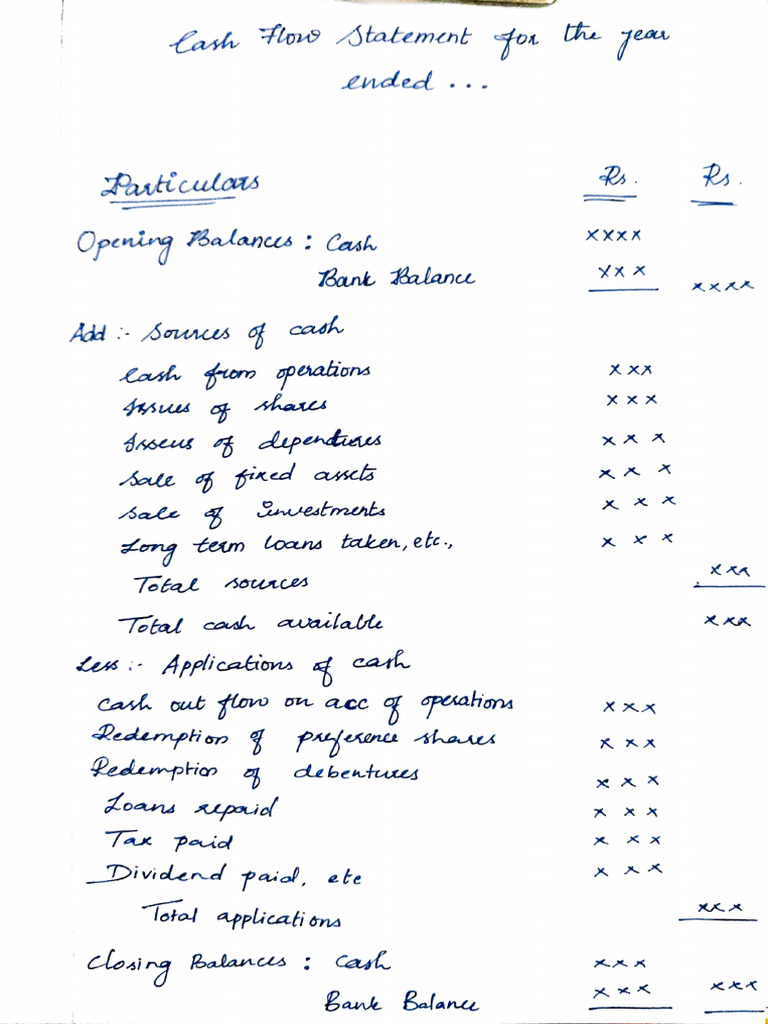 Cash Flow Statement for the year
ended ...
Particulars Rs. Rs.
Opening Balances : Cash xxxx
Bank Balance xxx xxxx
Add :- Sources of cash
Cash from operations xxx
Issues of shares xxx
Isseus of dependtures xxx
Sale of fixed assets xxx
Sale of Investments xxx
Long term loans taken, etc., xxx
Total sources xxx
Total cash available xxx
Less :- Applications of cash
Cash out flow on acc of operations xxx
Redemption of preference shares xxx
Redemption of debentures xxx
Loans repaid xxx
Tax paid xxx
Dividend paid, etc xxx
Total applications xxx
Closing Balances : Cash xxx
Bank Balance xxx xxx